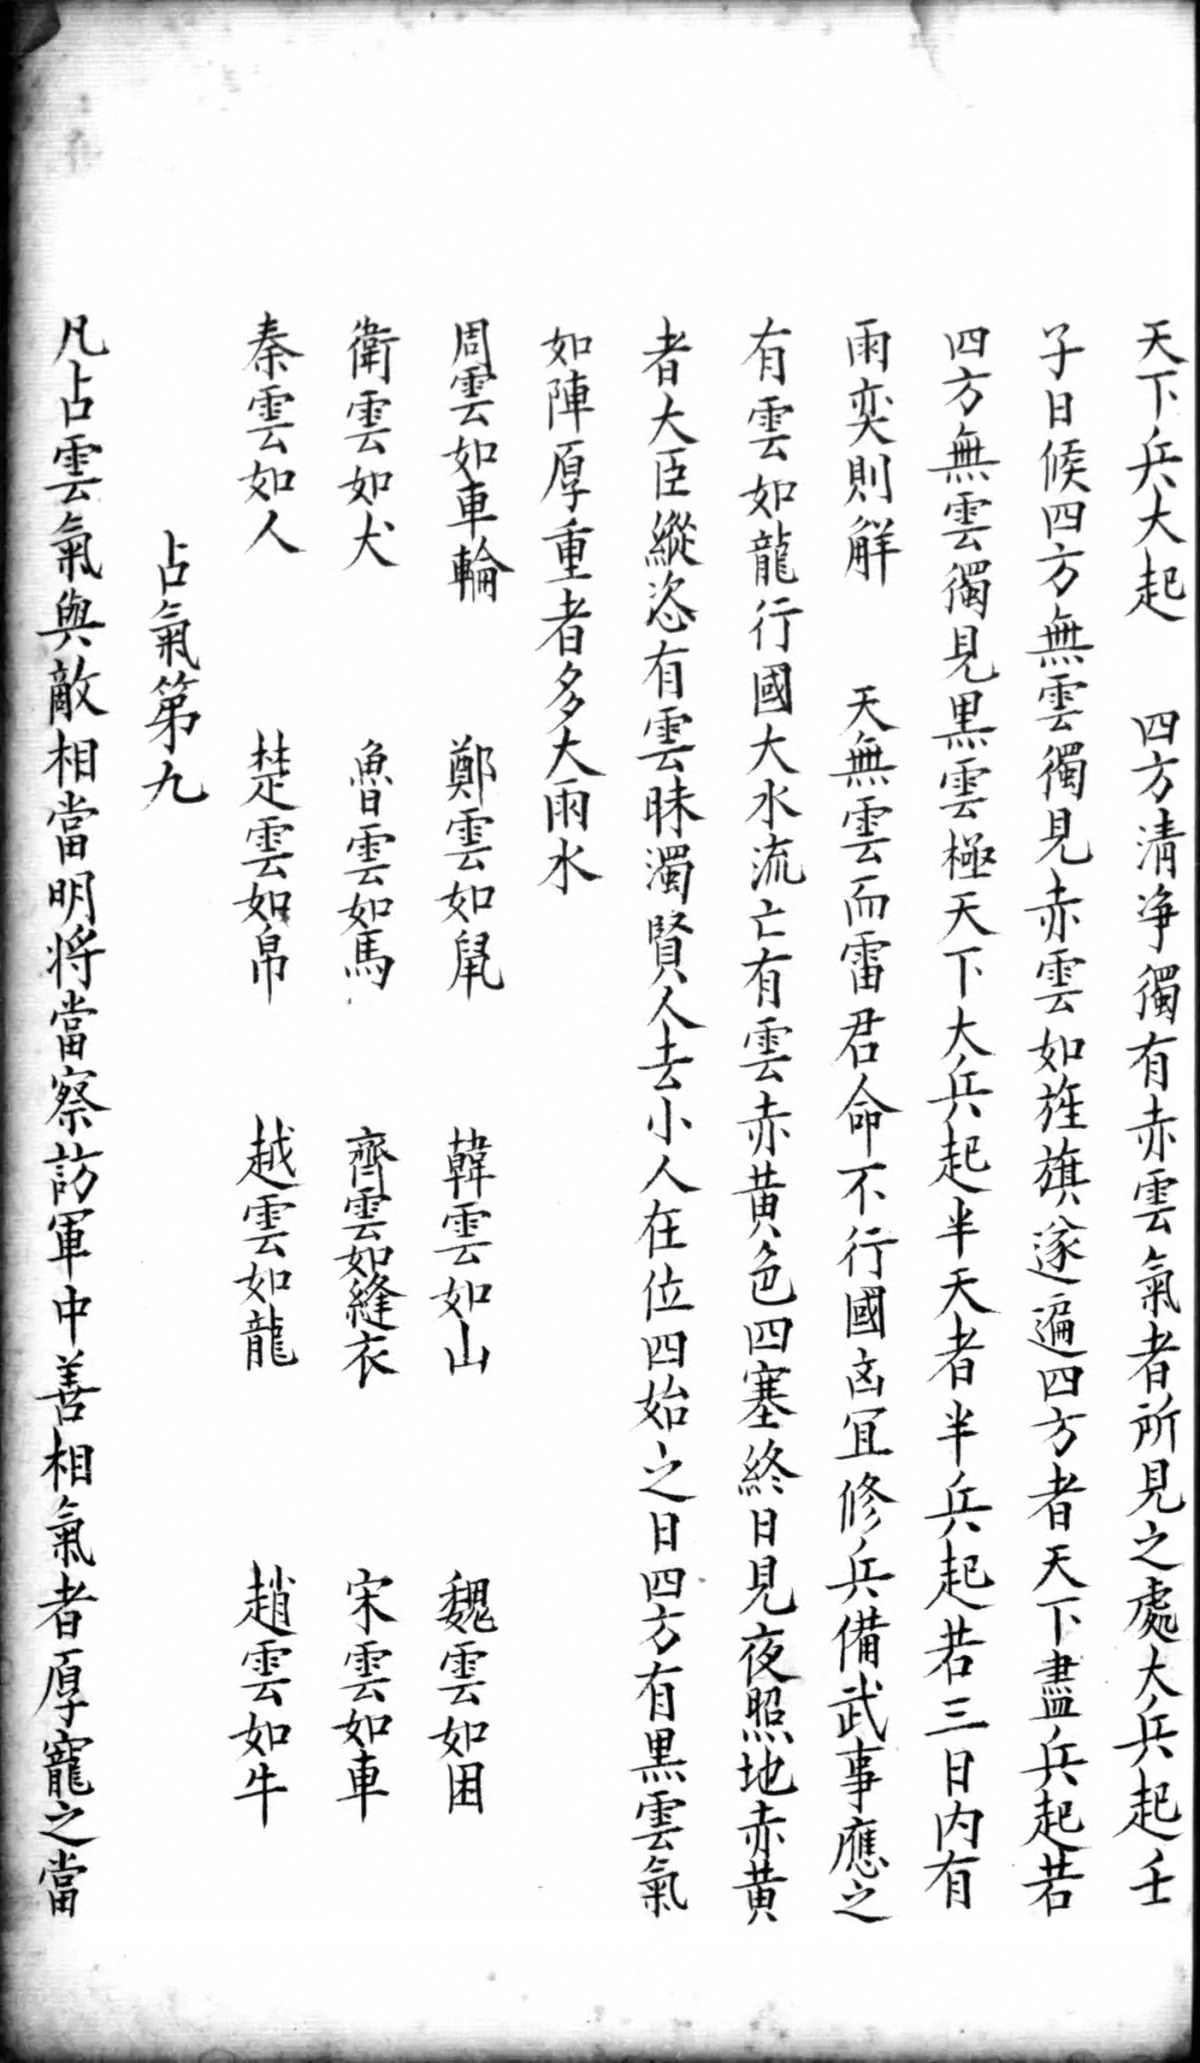 天下兵大起　四方清净獨有赤雲氣者所見之處大兵起壬
子日候四方無雲獨見赤雲如旌旗遂遍四方者天下盡兵起若
四方無雲獨見黒雲極天下大兵起半天者半兵起若三日内有
雨奕則解　天無雲而雷君命不行國凶冝修兵備武事應之
有雲如龍行國大水流亡有雲赤黄色四塞終日見夜照地赤黄
者大臣縱恣有雲昧濁賢人去小人在位四始之日四方有黒雲氣
如陣厚重者多大雨水
周雲如車輪　鄭雲如鼠　韓雲如山　魏雲如困
衛雲如犬　魯雲如馬　齊雲如縫衣　宋雲如車
秦雲如人　楚雲如帛　越雲如龍　趙雲如牛
占氣第九
凡占雲氣與敵相當明将當察訪軍中善相氣者厚寵之當